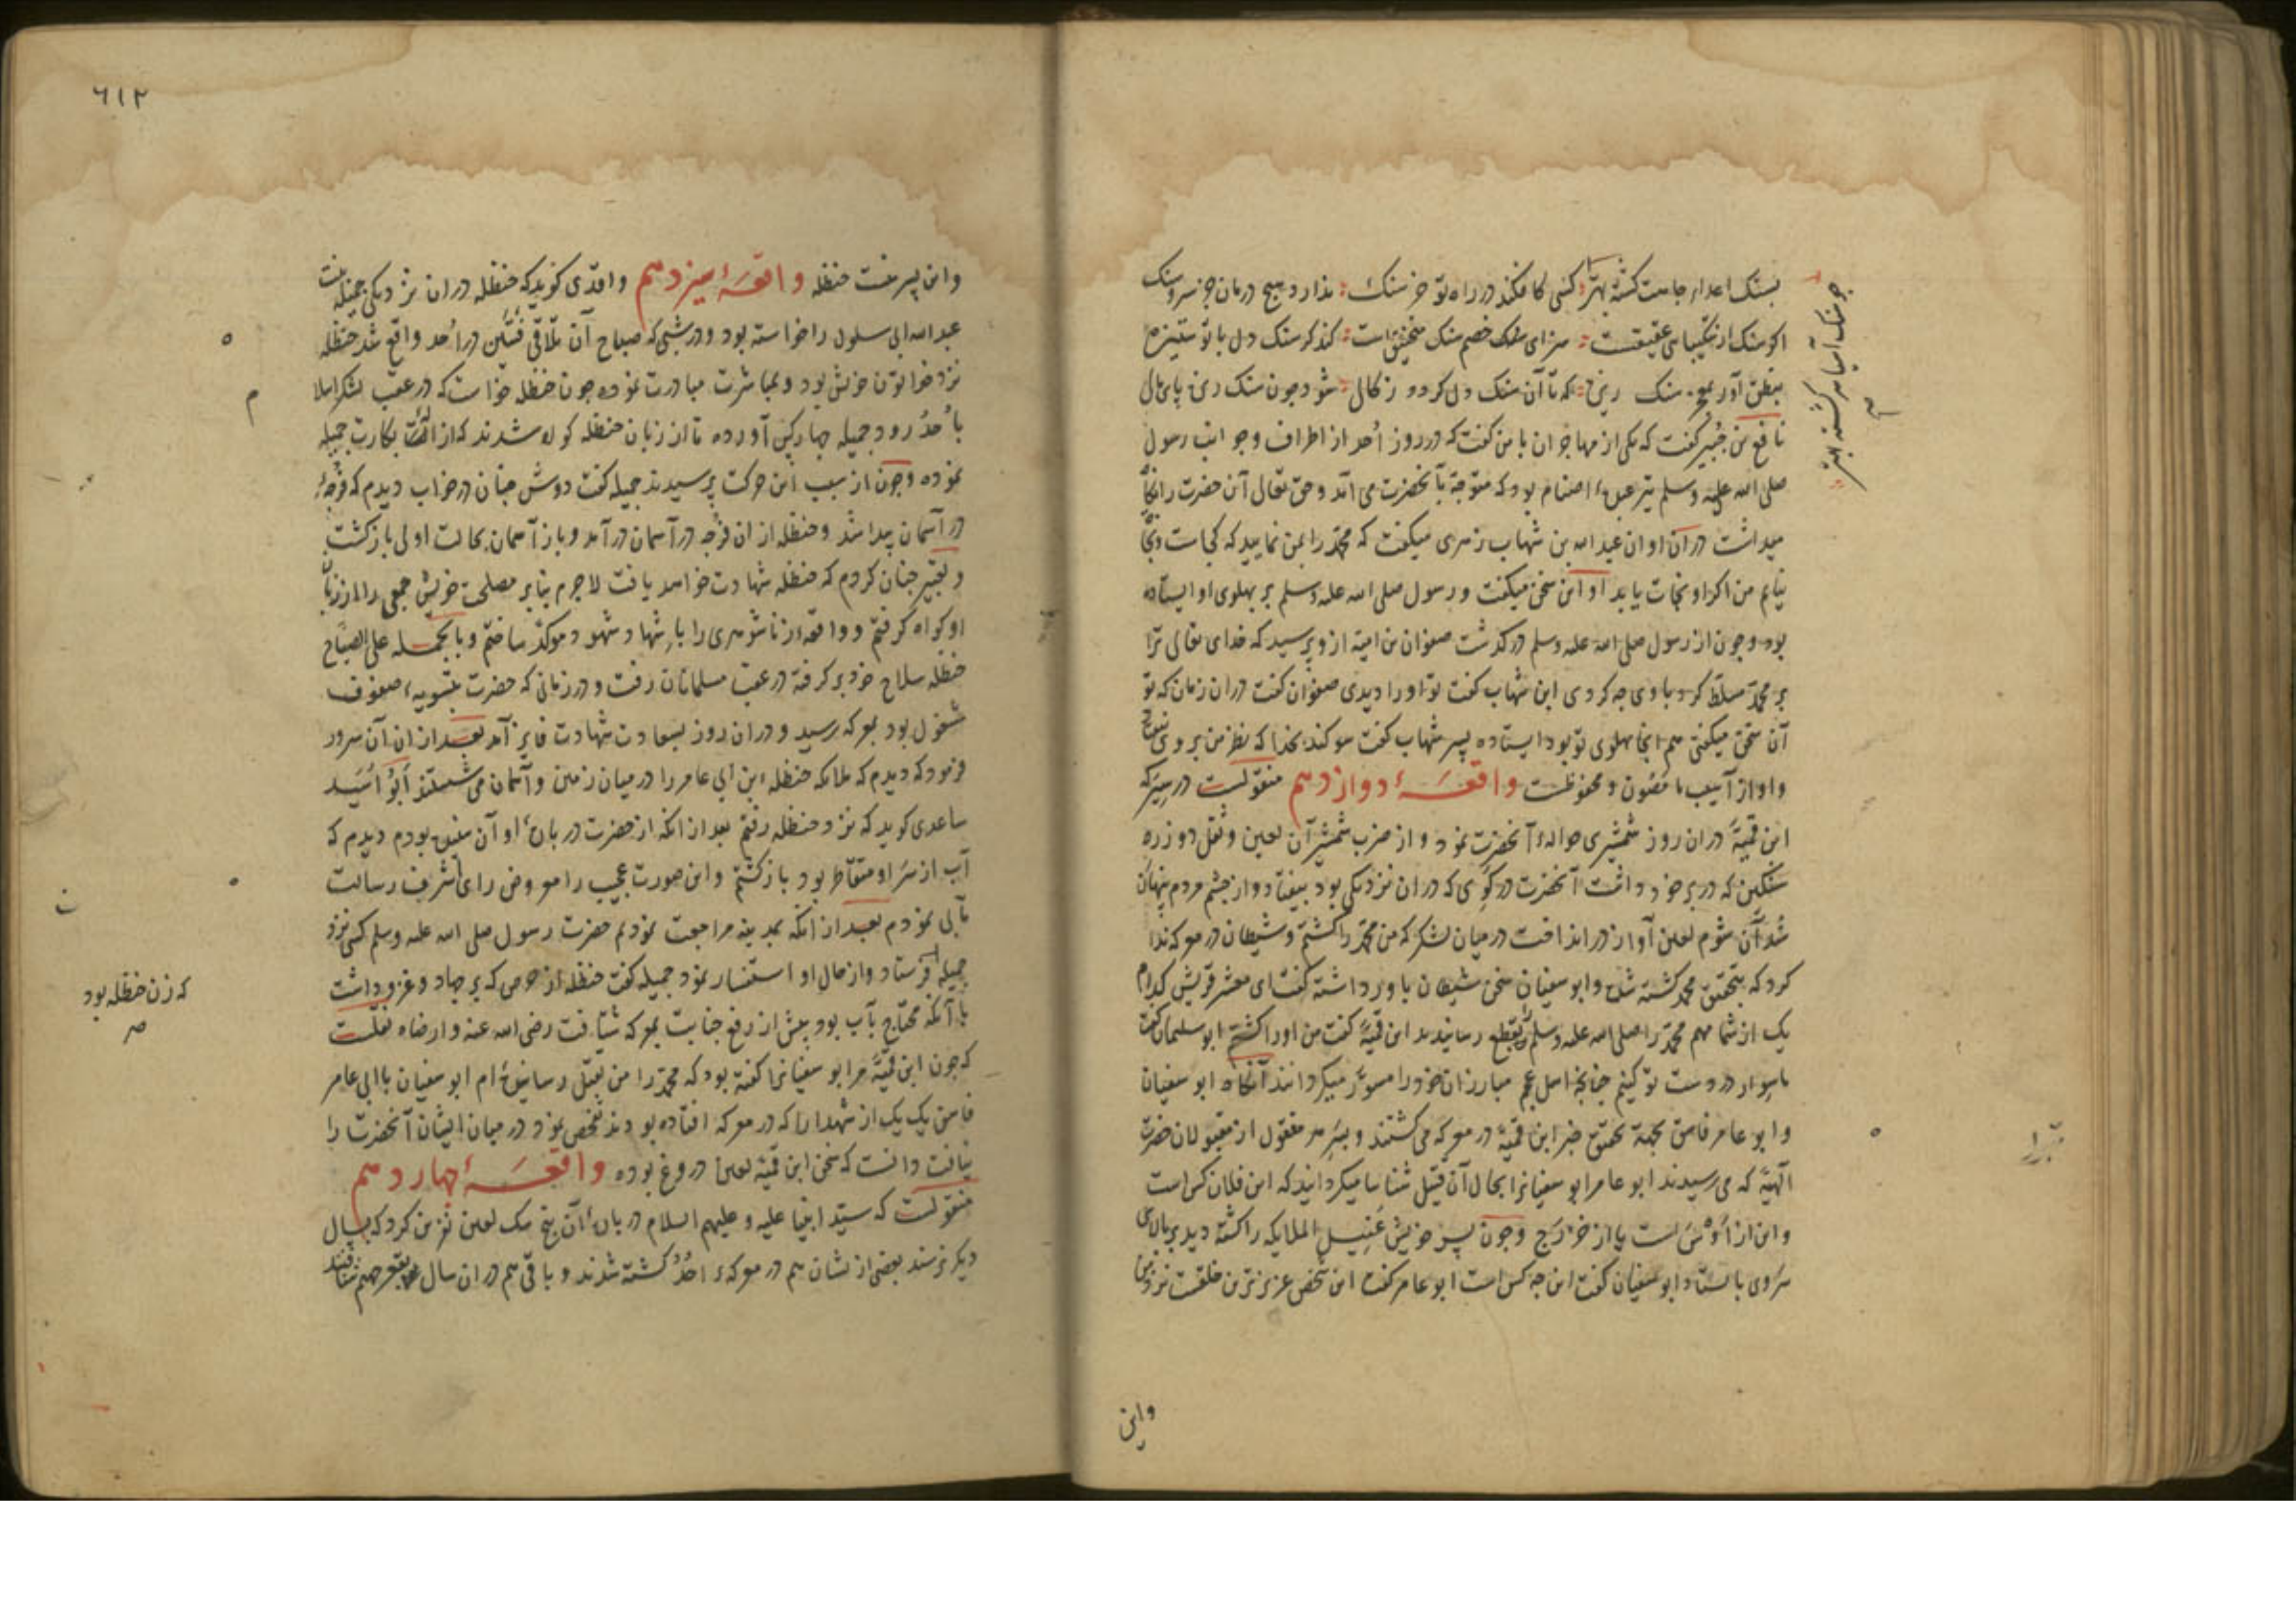 بسنک اعداء جاهت کشته بهتر کسی کافکند در راه تو خرسنک ندارد هیچ درمان جز سر و سنک
اکر سنک از شکیبایی عقیقست سزای خصم سنک منجنیق است کند کر سنک دل با تو ستیزه
که تا آن سنک دل کردد ز کالی شود چون سنک ریزه پای مالی
نافع بن جبیر کفت که یکی از مهاجران با من کفت که در روز اُحد از اطراف و جوانب رسول
صلی الله علیه وسلم تیر عبده اصنام بود که متوجه بآنحضرت می آمد و حق تعالی آن حضرت را نکاه
میداشت در آن اوان عبد الله بن شهاب زهری میکفت که محمد را بمن نمایید که کجاست و نجات
نیابم من اکر او نجات یابد او این سخن میکفت و رسول صلی الله علیه وسلم بر پهلوی او ایستاده
بود و چون از رسول صلی الله علیه وسلم درکذشت صفوان بن امیة از وی پرسید که خدای تعالی ترا
بر محمد مسلط کرد با وی چه کردی ابن شهاب کفت تو او را دیدی صفوان کفت در ان زمان که تو
آن سخن میکفتی هم انجا پهلوی تو بود ایستاده پسر شهاب کفت سوکند بخدا که نظر من بر وی نیفتاد
و او از آسیب ما مصون و محفوظست واقعهٔ دوازدهم منقولست در سیر که
ابن قمیة در ان روز شمشیری حوالهٔ آنحضرت نمود و از ضرب شمشیر آن لعین و ثقل دو زره
سنکین که در بر خود داشت آنحضرت در کَوی که در ان نزدیکی بود بیفتاد و از چشم مردم پنهان
شد آن شوم لعین آواز در انداخت در میان لشکر که من محمد را کشتم و شیطان در معرکه ندا
کرد که بتحقیق محمد کشته شد و ابو سفیان سخن شیطان باور داشته کفت ای معشر قریش کدام
یک از شما مهم محمد را صلی الله علیه وسلم بقطع رسانیدند ابن قمیة کفت من او را کشتم ابو سفیان کفت
ما سوار در دست تو کنیم چنانچه اهل عجم مبارزان خود را مسور میکردانند آنکاه ابو سفیان
و ابو عامر فاسق بجهة تحقیق خبر ابن قمیة در معرکه می کشتند و بسر هر مقتول از مقبولان حضرت
الهیة که می رسیدند ابو عامر ابو سفیانرا بحال آن قتیل شناسا میکردانید که این فلان کس است
و این از اَوْس است یا از خزرج و چون پسر خویش غسیل الملایکه را کشته دید بر بالای
سر وی بایستاد ابو سفیان کفت این چه کس است ابو عامر کفت این شخص عزیزترین خلقست نزد من
چو سنک آسیا سرکشته بهتر
واین
٦١٢
و این پسر منست حنظله واقعهٔ سیزدهم واقدی کوید که حنظله در ان نزدیکی جمیله بنت
عبد الله ابی سلول را خواسته بود و در شبی که صباح آن تلاقی فئتین در اُحد واقع شد حنظله
نزد خواتون خویش بود و بمباشرت مبادرت نموده چون حنظله خواست که در عقب لشکر اسلام
باُحد رود جمیله چهار کس آورده تا از زبان حنظله کواه شدند که ازالت بکارت جمیله
نموده و چون از سبب این حرکت پرسیدند جمیله کفت دوش چنان در خواب دیدم که فرجهٔ
در آسمان پیدا شد و حنظله از ان فرجه در آسمان در آمد و باز آسمان بحالت اولی باز کشت
و تعبیر چنان کردم که حنظله شهادت خواهد یافت لاجرم بنابر مصلحت خویش جمعی را از زبان
او کواه کرفتم و واقعهٔ زناشوهری را باِشهاد شهود موکد ساختم و بالجمله علی الصباح
حنظله سلاح خود بر کرفته در عقب مسلمانان رفت و در زمانی که حضرت بتسویهٔ صفوف
مشغول بود بمعرکه رسید و در ان روز بسعادت شهادت فایز آمد بعد از ان آن سرور
فرمود که دیدم که ملایکه حنظله ابن ابی عامر را در میان زمین و آسمان می شستند اَبو اُسَید
ساعدی کوید که نزد حنظله رفتم بعد از انکه از حضرت در بارهٔ او آن سخن شنوده بودم دیدم که
آب از سر او متقاطر بود باز کشتم و این صورت عجیب را معروض رای اشرف رسالت
مآبی نمودم بعد از انکه بمدینه مراجعت نمودیم حضرت رسول صلی الله علیه وسلم کسی نزد
جمیله فرستاد و از حال او استفسار نمود جمیله کفت حنظله از حرصی که بر جهاد و غزو داشت
با آنکه محتاج بآب بود پیش از رفع جنابت بمعرکه شتافت رضی الله عنه و ارضاه نقلست
که چون ابن قمیة مر ابو سفیانرا کفته بود که محمد را من بقتل رسانیده ام ابو سفیان با ابی عامر
فاسق یک یک از شهدا را که در معرکه افتاده بودند تفحص نمود و در میان ایشان آنحضرت را
نیافت دانست که سخن ابن قمیة لعین دروغ بوده واقعهٔ چهاردهم
منقولست که سید انبیا علیه و علیهم السلام در بارهٔ آن پنج سک لعین نفرین کرد که بسال
دیکر نرسند بعضی ازیشان هم در معرکهٔ اُحُد کشته شدند و باقی هم در ان سال بقعر جهنم شتافتند
که زن حنظله بود